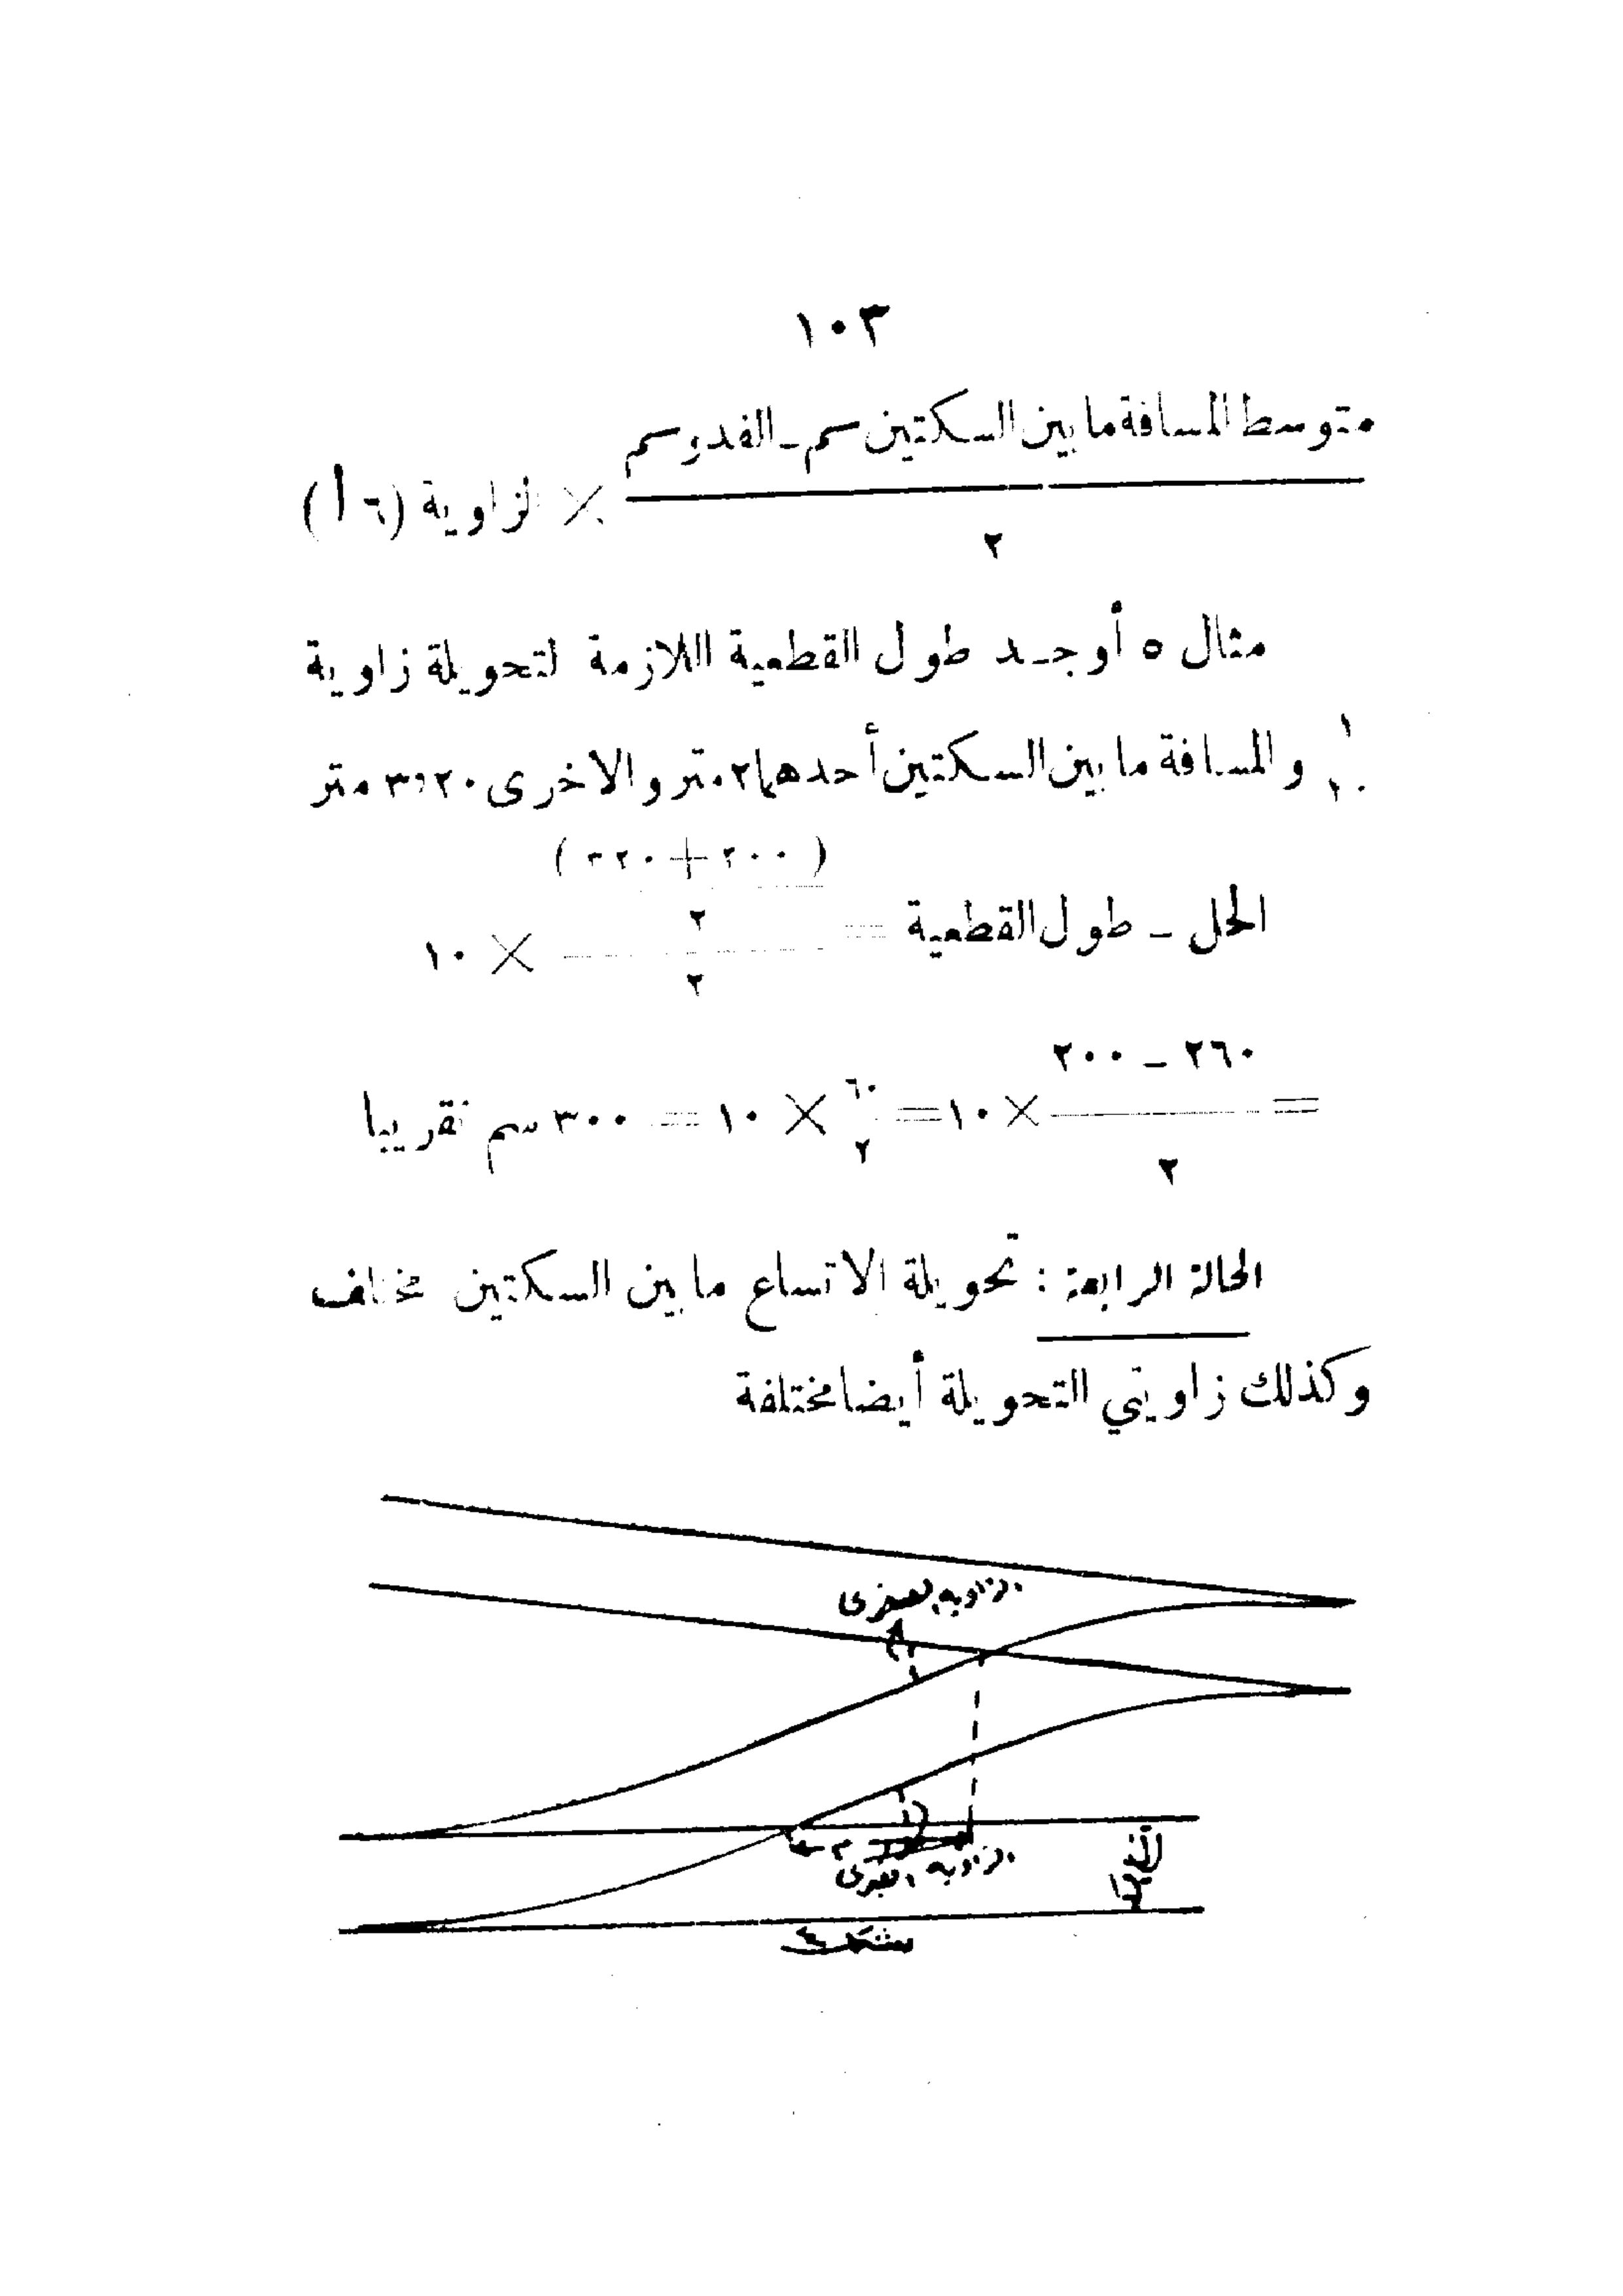 ١٠٣
متوسط المسافة ما بين السكتين سم ـ الفد وسم
× الزاوية (٦ أ)
٢
مثال ٥ أوجد طول القطعية اللازمة لتحويلة زاوية
والمسافة ما بين السكتين أحدهما ٢ متر والاخرى ٣٫٢٠ متر
(٢٠٠ + ٣٢٠)
٢
الحل ـ طول القطعية = × ١٠
٢
٢٦٠ ـ ٢٠٠
= × ١٠ = ٦٠ × ١٠ = ٣٠٠ سم تقريبا
٢ ٢
الحالة الرابعة : تحويلة الاتساع ما بين السكتين مختلف
وكذلك زاويتي التحويلة أيضا مختلفة
الزاوية الصغرى
الزاوية الكبرى
شكل ٤